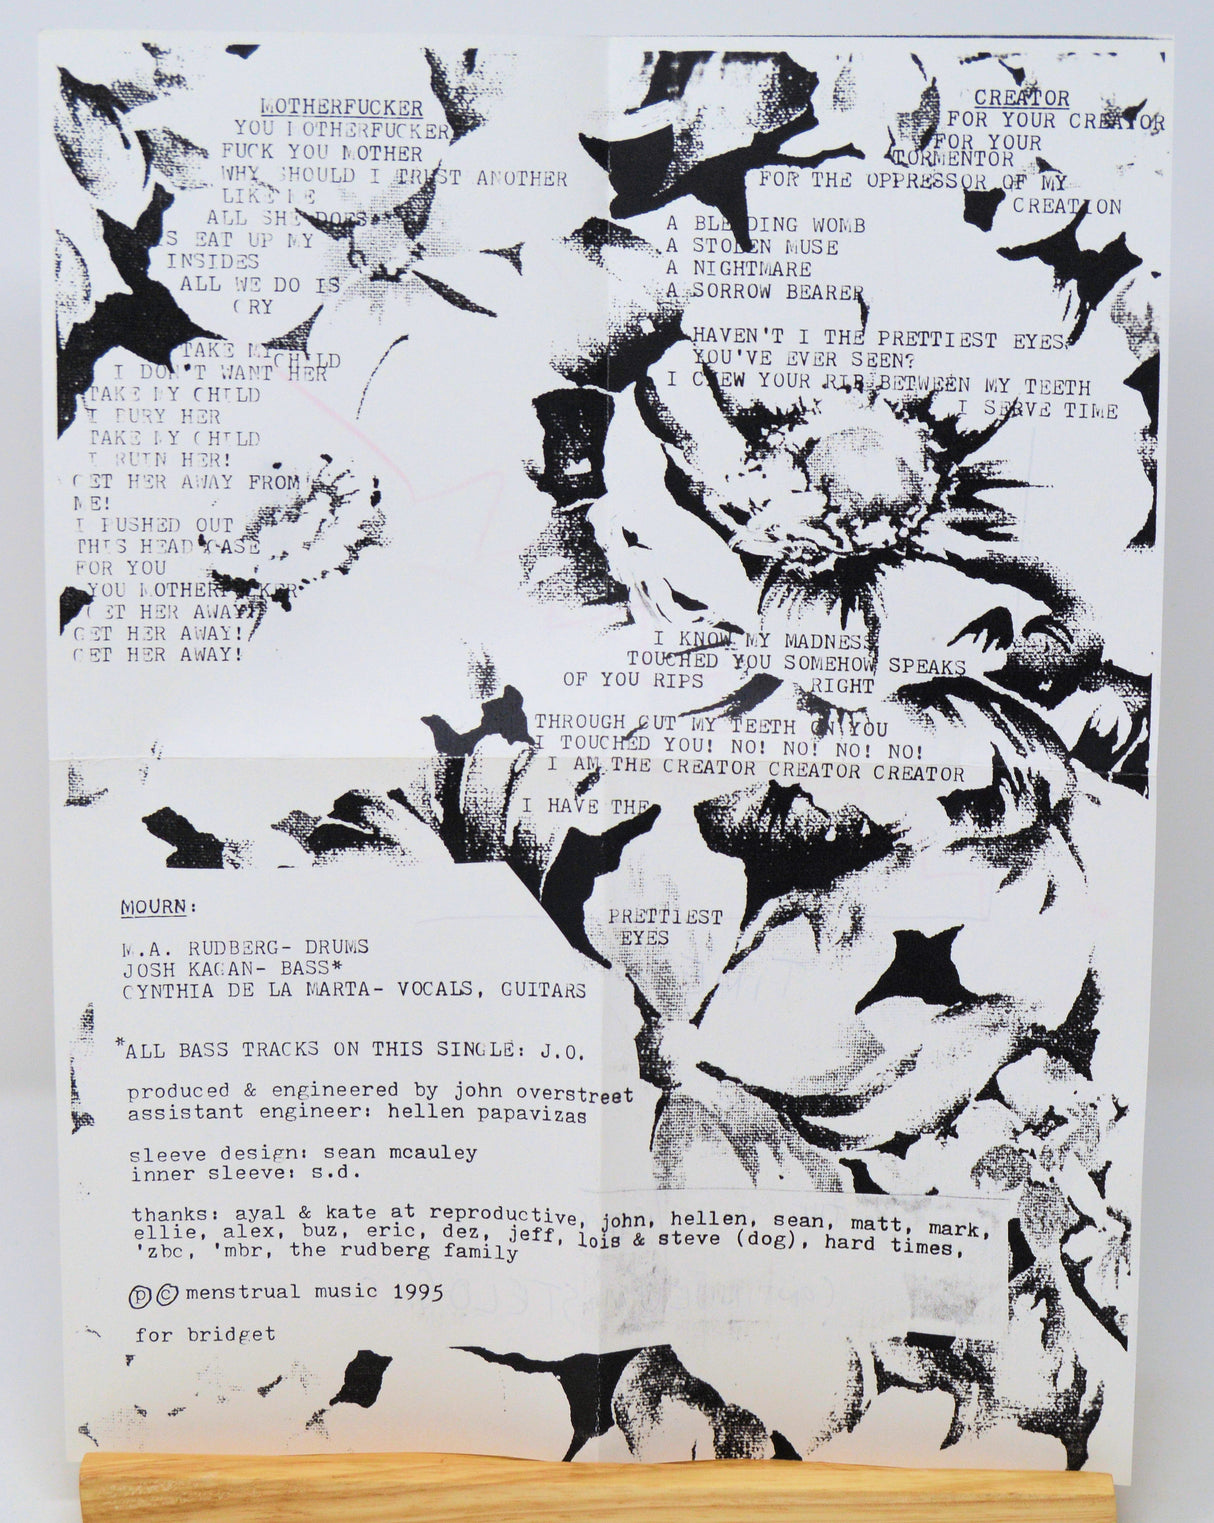 MOTHERFUCKER
YOU MOTHERFUCKER
FUCK YOU MOTHER
WHY SHOULD I TRUST ANOTHER
LIKE ME
ALL SHE DOES
IS EAT UP MY
INSIDES
ALL WE DO IS
CRY
TAKE MY CHILD
I DON'T WANT HER
TAKE MY CHILD
I BURY HER
TAKE MY CHILD
I RUIN HER!
GET HER AWAY FROM
ME!
I PUSHED OUT
THIS HEAD CASE
FOR YOU
YOU MOTHERFUCKER
GET HER AWAY!
GET HER AWAY!
GET HER AWAY!
CREATOR
FOR YOUR CREATOR
FOR YOUR
TORMENTOR
FOR THE OPPRESSOR OF MY
CREATION
A BLEEDING WOMB
A STOLEN MUSE
A NIGHTMARE
A SORROW BEARER
HAVEN'T I THE PRETTIEST EYES
YOU'VE EVER SEEN?
I CHEW YOUR RIB BETWEEN MY TEETH
I SERVE TIME
I KNOW MY MADNESS
TOUCHED YOU SOMEHOW SPEAKS
OF YOU RIPS RIGHT
THROUGH CUT MY TEETH ON YOU
I TOUCHED YOU! NO! NO! NO! NO!
I AM THE CREATOR CREATOR CREATOR
I HAVE THE
PRETTIEST
EYES
MOURN:
M.A. RUDBERG- DRUMS
JOSH KAGAN- BASS*
CYNTHIA DE LA MARTA- VOCALS, GUITARS
*ALL BASS TRACKS ON THIS SINGLE: J.O.
produced & engineered by john overstreet
assistant engineer: hellen papavizas
sleeve design: sean mcauley
inner sleeve: s.d.
thanks: ayal & kate at reproductive, john, hellen, sean, matt, mark,
ellie, alex, buz, eric, dez, jeff, lois & steve (dog), hard times,
'zbc, 'mbr, the rudberg family
℗ © menstrual music 1995
for bridget